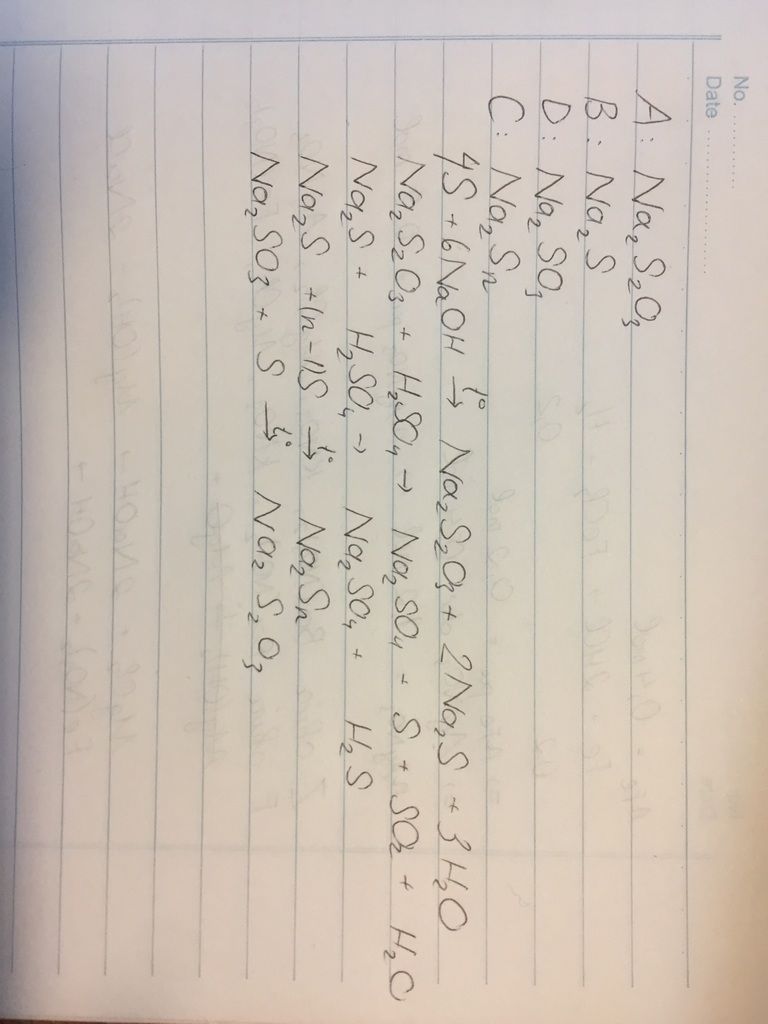 No. ............
Date ......................
A: Na₂S₂O₃
B: Na₂S
D: Na₂SO₃
C: Na₂Sₙ
4S + 6NaOH →t° Na₂S₂O₃ + 2Na₂S + 3H₂O
Na₂S₂O₃ + H₂SO₄ → Na₂SO₄ + S + SO₂ + H₂O
Na₂S + H₂SO₄ → Na₂SO₄ + H₂S
Na₂S + (n-1)S →t° Na₂Sₙ
Na₂SO₃ + S →t° Na₂S₂O₃